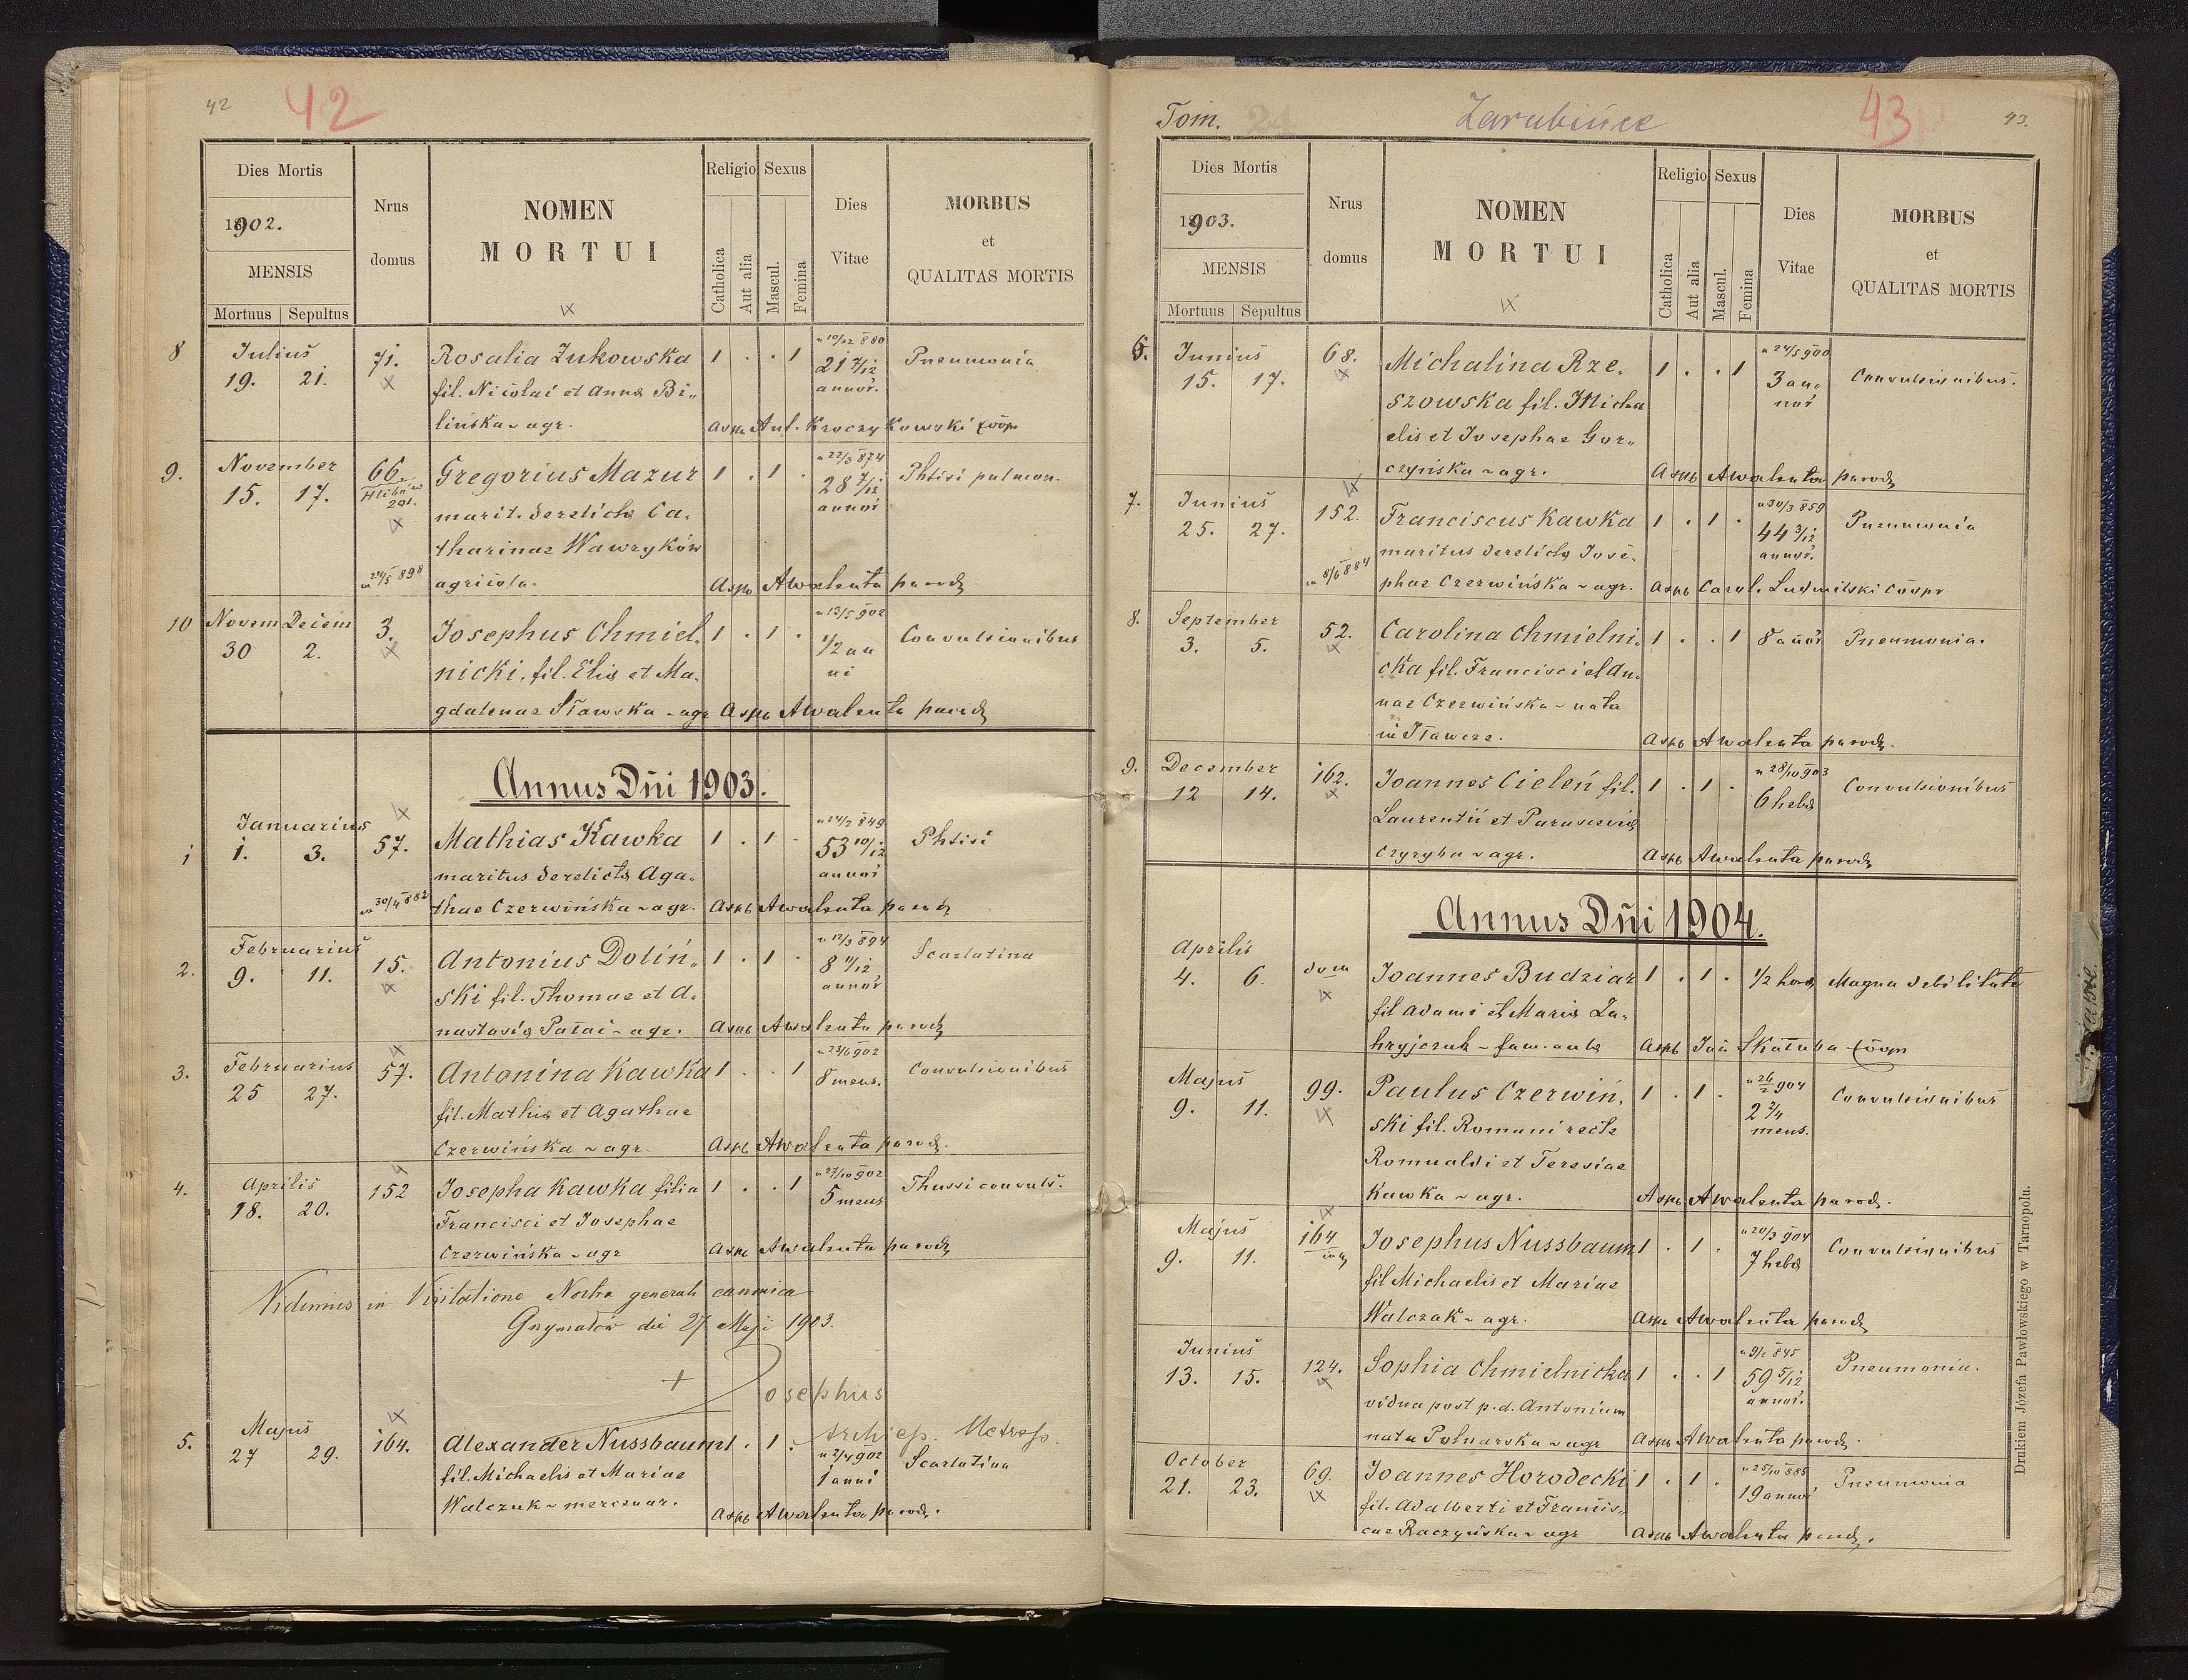 42 42
Dies Mortis
1902.
MENSIS
Mortuus Sepultus
Nrus domus
NOMEN
MORTUI
Religio
Catholica
Aut alia
Sexus
Mascul.
Femina
Dies
Vitae
MORBUS
et
QUALITAS MORTIS
8 Julius 71. Rosalia Żukowska 1 . . 1 Pneumonia
19. 21. fil. Nicolai et Annae Bi„ 21 7/12 annor.
lińska ~ agr. Ant. Kroczykowski coop
9. November 66 Gregorius Mazur 1 . 1 . Phtisi pulmon.
15. 17. 201. marit. derelictae Ca„ 28 7/12 annor
tharinae Wawryków
agricola. Awalenta paroch
10 Novem Decem 3. Josephus Chmiel„ 1 . 1 . 13/5 902 Convulsionibus
30 2. nicki, fil. Eliae et Ma„ 1/2 anni
gdalenae Sławska ~ agr Awalenta paroch
Annus Dñi 1903.
1 Januarius 57. Mathias Kawka 1 . 1 . 24/2 849 Phtisi
1. 3. maritus derelictae Aga„ 53 10/12 annor
30/4 882 thae Czerwińska ~ agr. Awalenta paroch
2. Februarius 15. Antonius Doliń„ 1 . 1 . 12/3 894 Scarlatina
9. 11. ski fil. Thomae et A„ 8 11/12 annor
nastasiae Pałac ~ agr. Awalenta paroch
3. Februarius 57. Antonina Kawka 1 . . 1 23/6 902 Convulsionibus
25 27. fil. Mathiae et Agathae 8 mens.
Czerwińska ~ agr. Awalenta paroch.
4. Aprilis 152 Josepha Kawka filia 1 . . 1 27/10 902 Thussi convuls.
18. 20. Francisci et Josephae 5 mens
Czerwińska ~ agr Awalenta paroch
Vidimus in Visitatione Nostra generali canonica
Grzymałów die 27 Maji 1903.
+ Josephus
Archiep. Metrop.
5. Majus 164. Alexander Nussbaum 1 . 1 . 2/4 902 Scarlatina
27 29. fil. Michaelis et Mariae 1 anni
Walczuk ~ mercenar. Awalenta paroch.
Tom. 24 Zarubińce 43 43.
Dies Mortis
1903.
MENSIS
Mortuus Sepultus
Nrus domus
NOMEN
MORTUI
Religio
Catholica
Aut alia
Sexus
Mascul.
Femina
Dies
Vitae
MORBUS
et
QUALITAS MORTIS
6. Junius 68. Michalina Rze„ 1 . . 1 24/5 900 Convulsionibus.
15. 17. szowska fil. Micha 3 annor
elis et Josephae Gor„
czyńska ~ agr. Awalenta paroch
7. Junius 152. Franciscus Kawka 1 . 1 . 30/3 859 Pneumonia
25. 27. maritus derelictae Jose„ 44 3/12 annor.
8/6 884 phae Czerwińska ~ agr. Carol. Ludwilski coopr
8. September 52. Carolina Chmielni„ 1 . . 1 8 annor Pneumonia.
3. 5. cka fil. Francisci et An„
nae Czerwińska ~ nata
in Iławcze. Awalenta paroch.
9. December 162. Joannes Cieleń fil. 1 . 1 . 28/10 903 Convulsionibus
12 14. Laurentii et Parasceviae 6 hebd
Czyzyha ~ agr. Awalenta paroch
Annus Dñi 1904.
Aprilis dom Joannes Budziar 1 . 1 . 1/2 horae Magna debilitate
4. 6. fil Adami et Mariae Za„
hryjczuk ~ fam. aulae Joan Skałuba coop
Majus 99. Paulus Czerwiń„ 1 . 1 . 26/2 904 Convulsionibus
9. 11. ski fil. Romani recte 2 2/4 mens.
Romualdi et Teresiae
Kawka ~ agr. Awalenta paroch.
Majus 164 Josephus Nussbaum 1 . 1 . 20/3 904 Convulsionibus
9. 11. fil Michaelis et Mariae 7 hebd
Walczak ~ agr. Awalenta paroch
Junius 124. Sophia Chmielnicka 1 . . 1 9/1 845 Pneumonia.
13. 15. vidua post p. d. Antonium 59 5/12 annor.
nata Polnarska ~ agr Awalenta paroch.
October 69. Joannes Horodecki 1 . 1 . 25/10 885 Pneumonia
21. 23. fil. Adalberti et Francis„ 19 annor
cae Raczyńska ~ agr Awalenta paroch.
Drukiem Józefa Pawłowskiego w Tarnopolu.